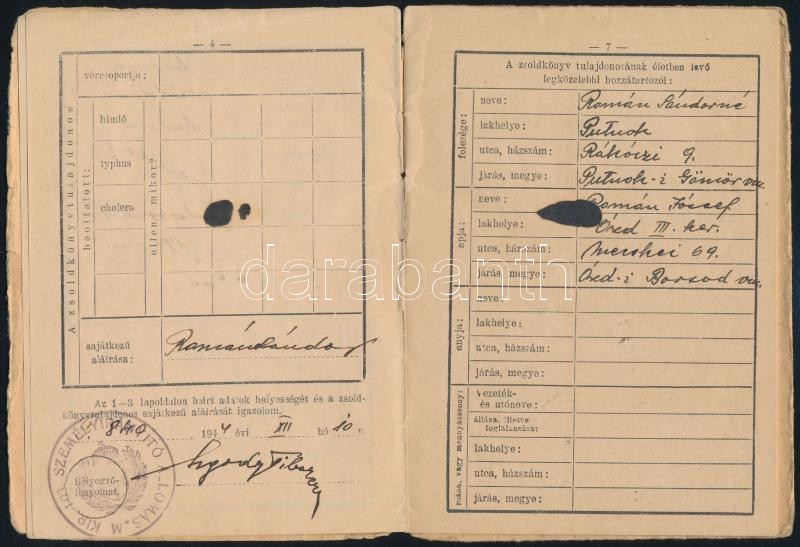 — 4 —
A zsoldkönyvtulajdonos
beoltatott:
vércsoportja:
himlő
typhus
cholera
ellen mikor?
sajátkezű
aláírása:
Román Sándor
Az 1—3. lapoldalon beirt adatok helyességét és a zsold-
könyvtulajdonos sajátkezű aláírását igazolom.
1944 évi XII hó 10
M. KIR. 103. SZEMÉLYI
Bélyegző-
lenyomat.
— 7 —
A zsoldkönyv tulajdonosának életben levő
legközelebbi hozzátartozói:
felesége:
neve: Román Sándorné
lakhelye: Putnok
utca, házszám: Rákóczi 9.
járás, megye: Putnok-i Gömör vm.
apja:
neve: Román József
lakhelye: Ózd III. ker.
utca, házszám: 69.
járás, megye: Ózd-i Borsod vm.
anyja:
neve:
lakhelye:
utca, házszám:
járás, megye:
rokon, vagy mennyasszony:
Vezeték-
és utóneve:
állása, illetve
foglalkozása:
lakhelye:
utca, házszám:
járás, megye:
darabanth